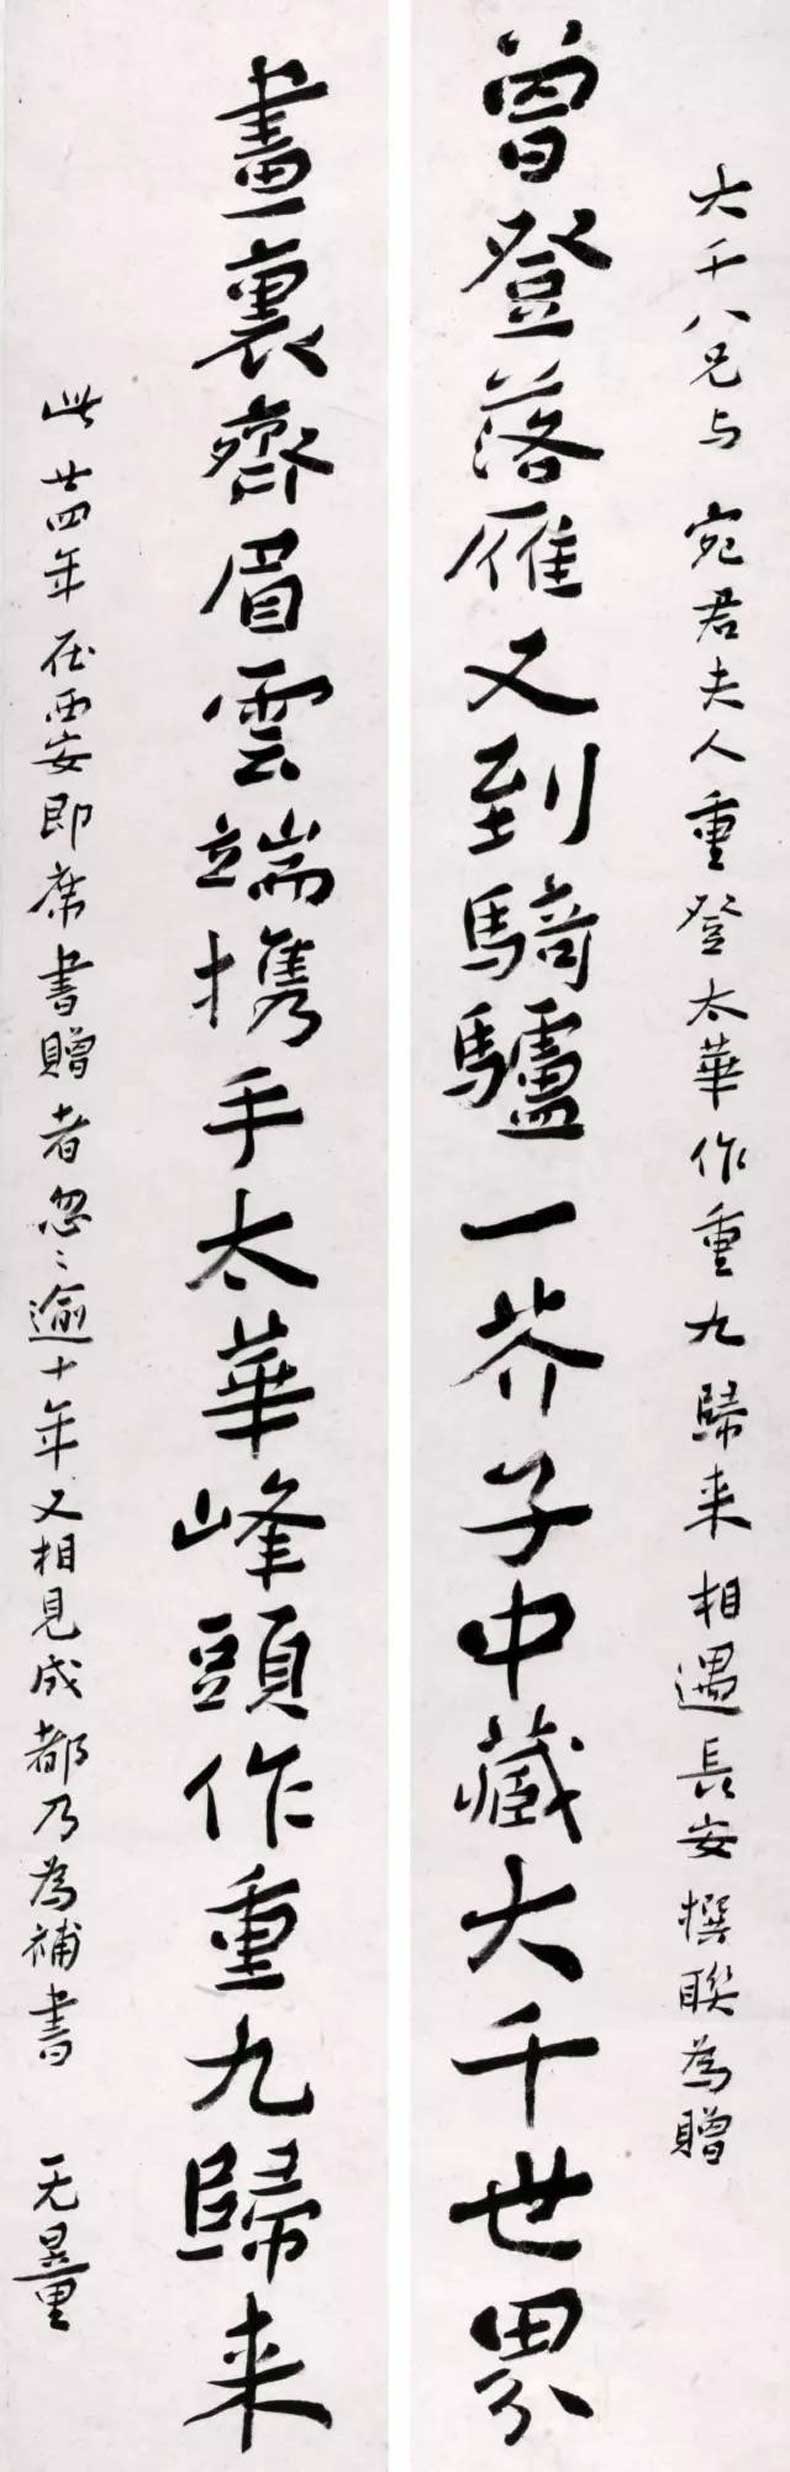 大千八兄与宛君夫人重登太華作重九歸来相遇長安撰聯為贈
曾登落雁又到騎驢一芥子中藏大千世界
畫裏齊眉雲端携手太華峰頭作重九歸来
此廿四年在西安即席書贈者忽忽逾十年又相見成都乃為補書 无量